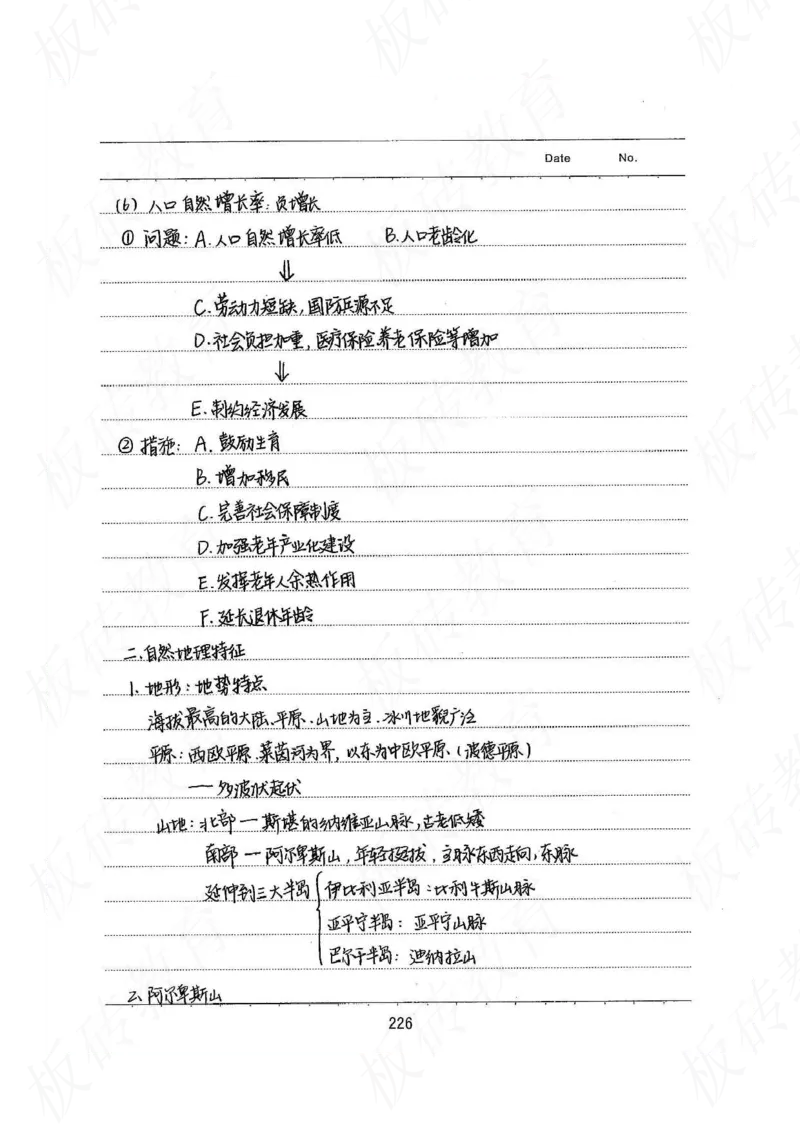 Date No.
(6) 人口自然增长率：负增长
① 问题：A.人口自然增长率低 B.人口老龄化
⇓
C.劳动力短缺，国防兵源不足
D.社会负担加重，医疗保险养老保险等增加
⇓
E.制约经济发展
② 措施：A.鼓励生育
B.增加移民
C.完善社会保障制度
D.加强老年产业化建设
E.发挥老年人余热作用
F.延长退休年龄
二.自然地理特征
1.地形：地势特点
海拔最高的大陆、平原、山地为主.冰川地貌广泛
平原：西欧平原.莱茵河为界，以东为中欧平原.(波德平原)
—多波状起伏
山地：北部—斯堪的纳维亚山脉，古老低矮
南部—阿尔卑斯山，年轻挺拔，主脉东西走向，东脉
延伸到三大半岛 伊比利亚半岛：比利牛斯山脉
亚平宁半岛：亚平宁山脉
巴尔干半岛：迪纳拉山
2.阿尔卑斯山
226
板砖教育